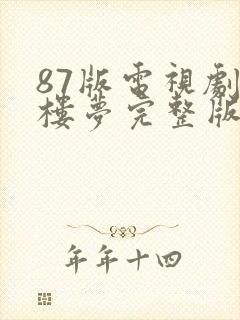 87版電視劇
樓夢完整版
年年十四